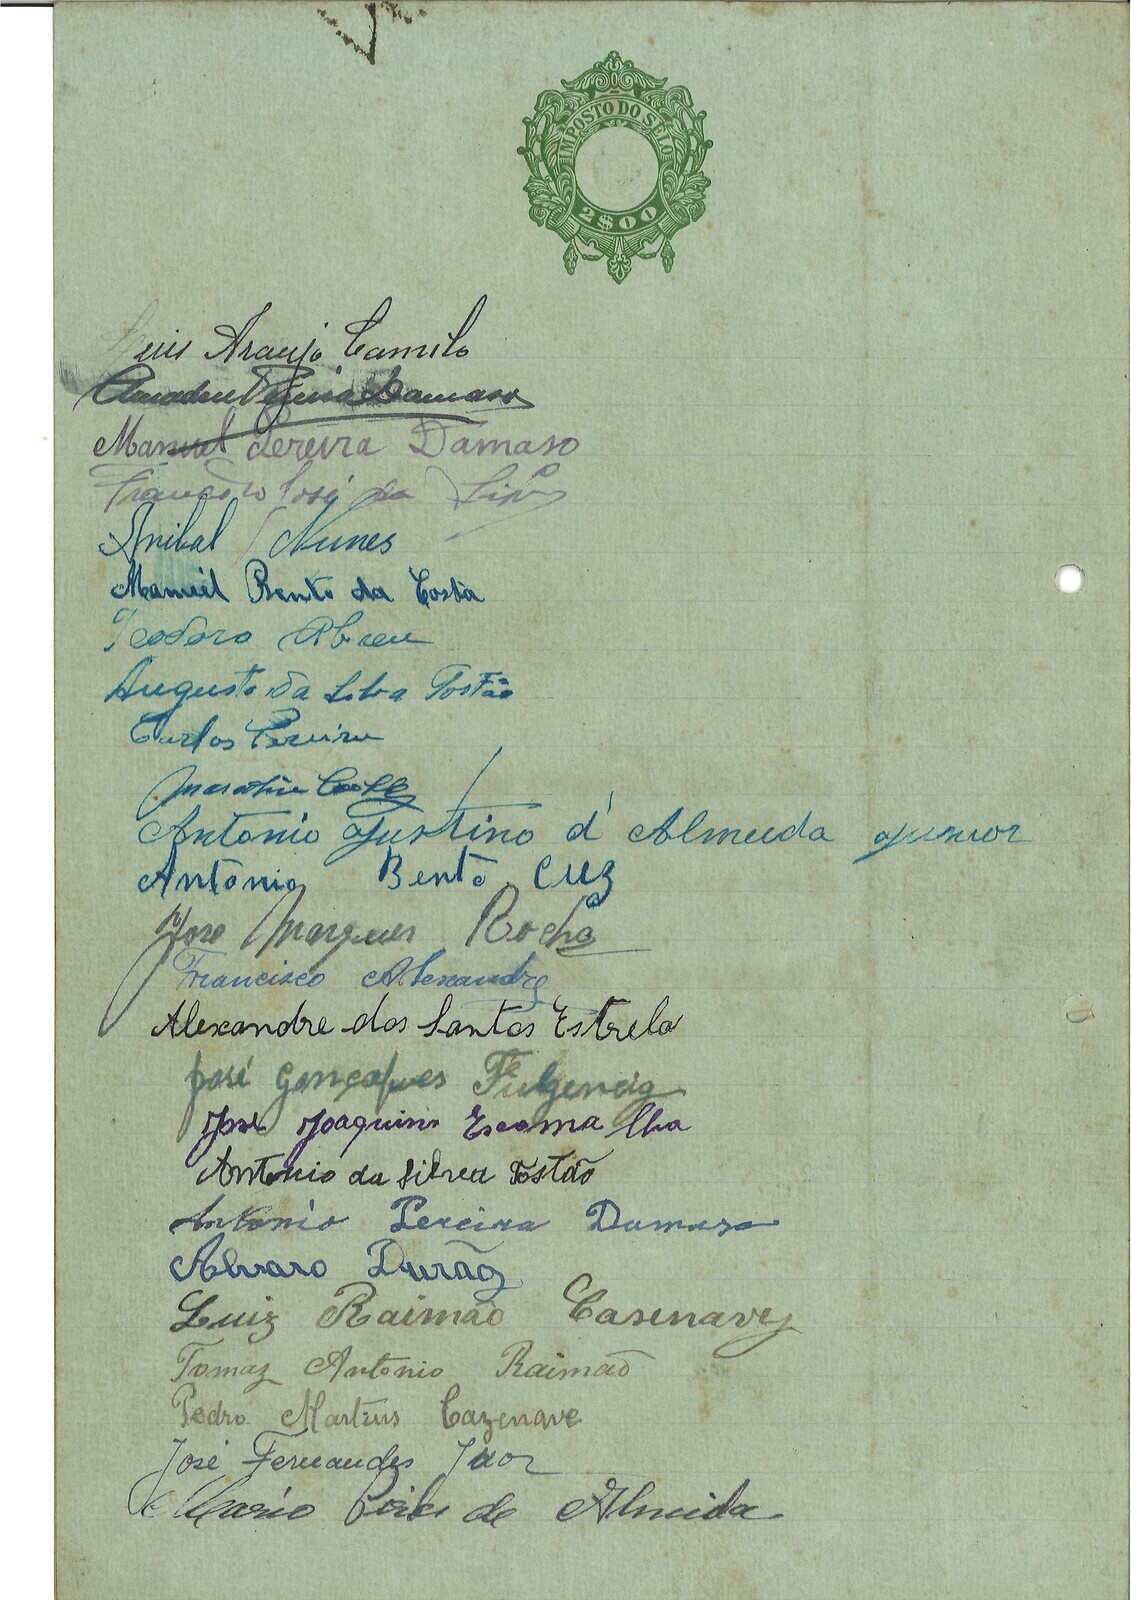 IMPOSTO DO SELO
2$00
Luis Araujo Camilo
Amadeu Damaso
Manuel Pereira Damaso
Francisco José da Silva
Anibal Nunes
Manuel Bento da Costa
Teodoro Abreu
Augusto da Silva Tostão
Carlos Pereira
Antonio Justino d'Almeida Junior
António Bento Cruz
José Marques Rocha
Francisco Alexandre
Alexandre dos Santos Estrela
José Gonçalves Fulgencio
José Joaquim Escamalha
Antonio da Silva Tostão
Antonio Pereira Damaso
Alvaro Durão
Luiz Raimão Casenave
Tomaz Antonio Raimão
Pedro Martins Cazenave
José Fernandes Juor
Mario de Almeida